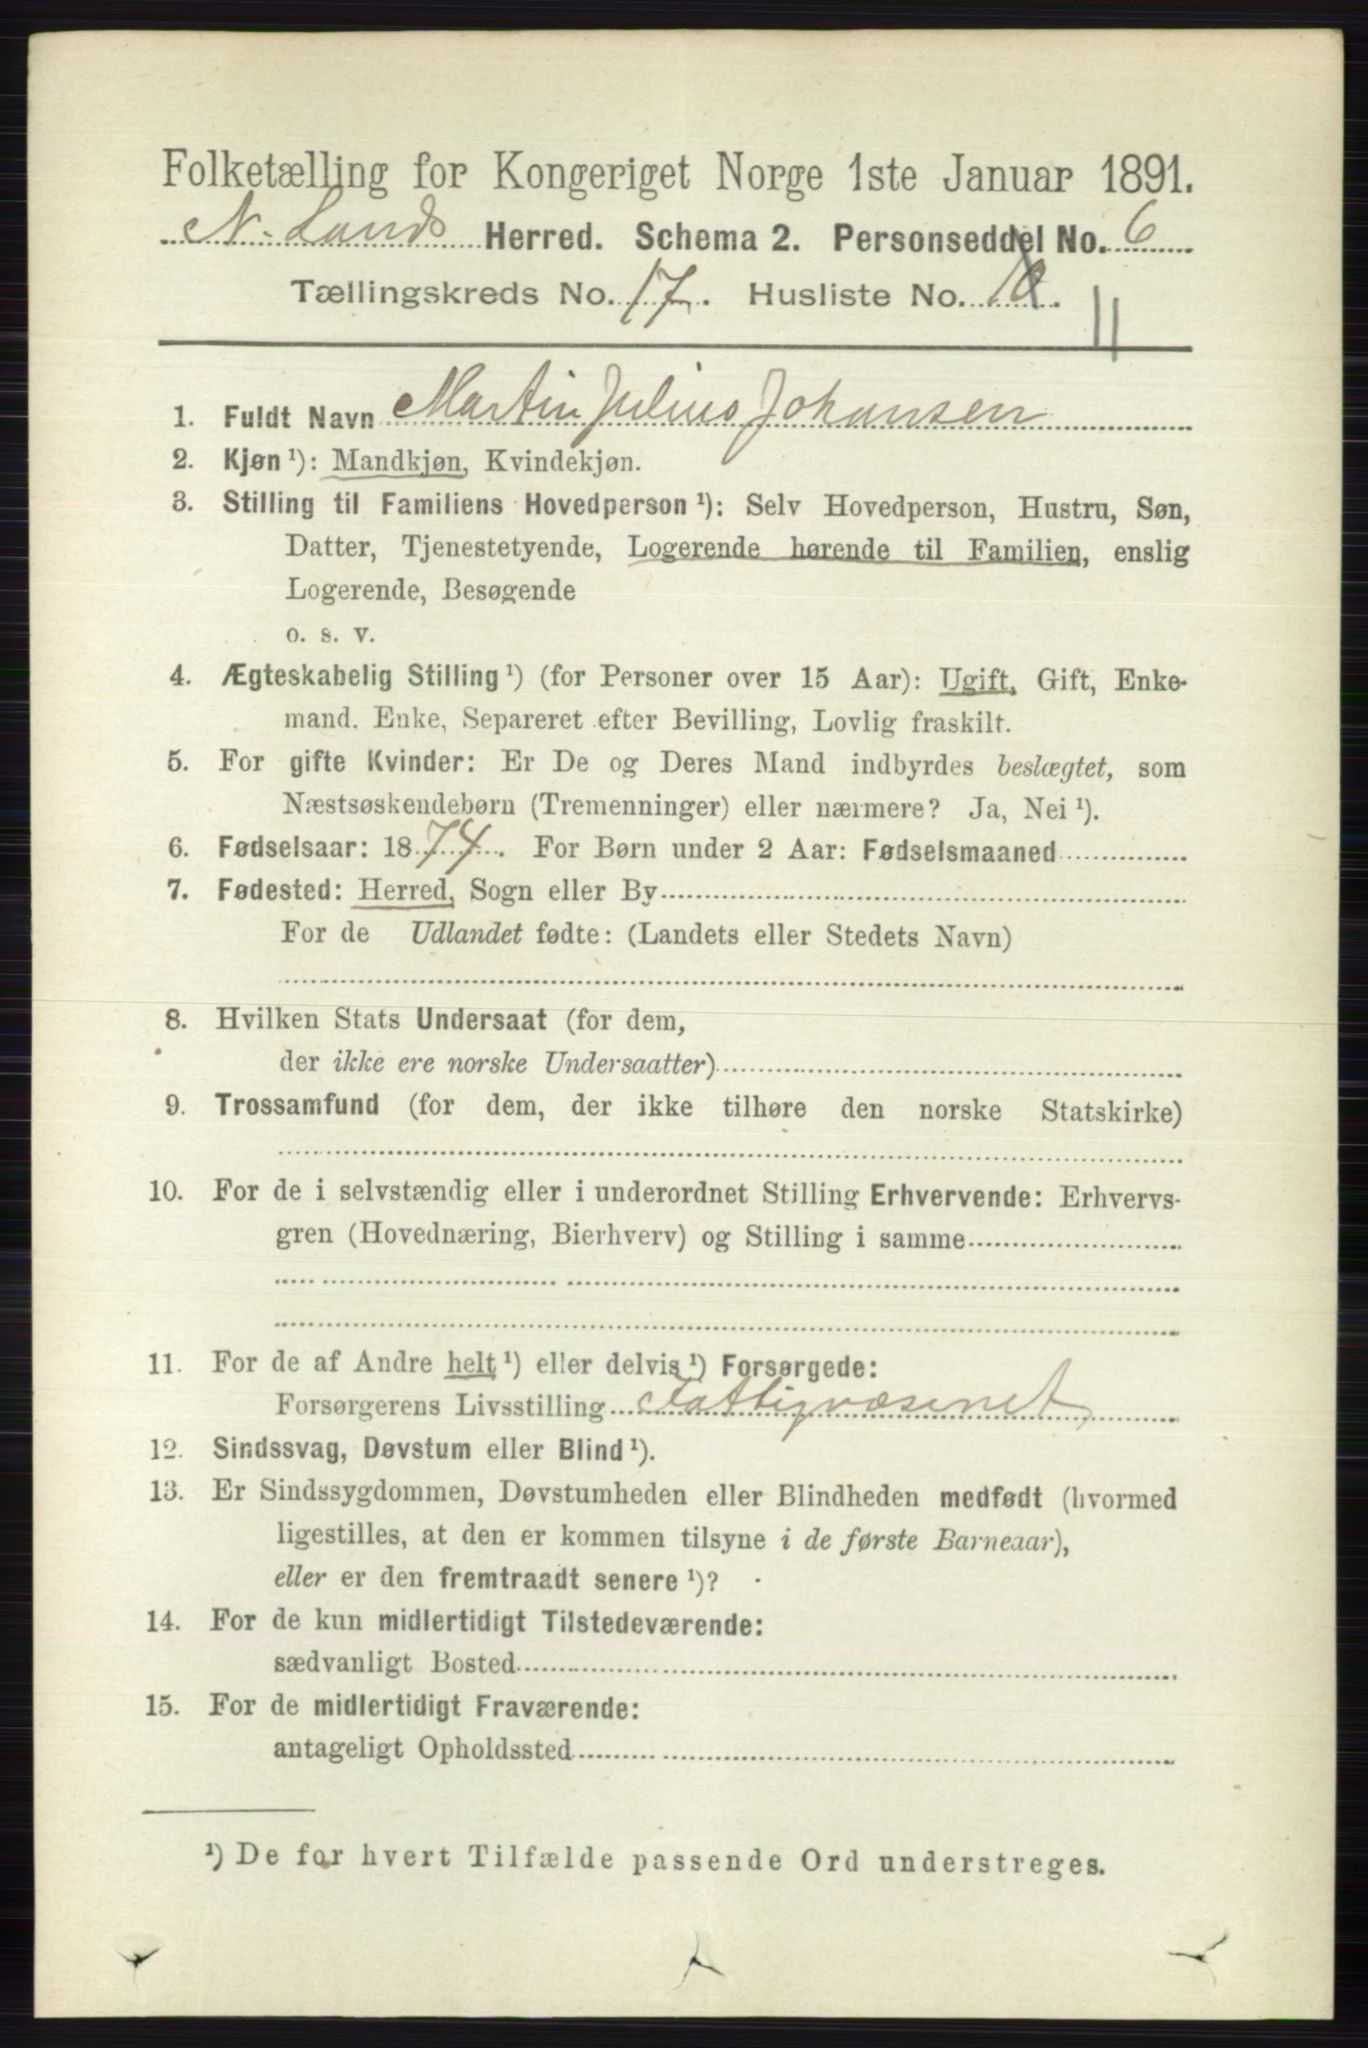 Folketælling for Kongeriget Norge 1ste Januar 1891.
N. Lands Herred. Schema 2. Personseddel No. 6
Tællingskreds No. 17. Husliste No. 10. 11
1. Fuldt Navn Martin Julius Johansen
2. Kjøn ¹): Mandkjøn, Kvindekjøn.
3. Stilling til Familiens Hovedperson ¹): Selv Hovedperson, Hustru, Søn,
Datter, Tjenestetyende, Logerende hørende til Familien, enslig
Logerende, Besøgende
o. s. v.
4. Ægteskabelig Stilling ¹) (for Personer over 15 Aar): Ugift, Gift, Enke-
mand, Enke, Separeret efter Bevilling, Lovlig fraskilt.
5. For gifte Kvinder: Er De og Deres Mand indbyrdes beslægtet, som
Næstsøskendebørn (Tremenninger) eller nærmere? Ja, Nei ¹).
6. Fødselsaar: 1874. For Børn under 2 Aar: Fødselsmaaned
7. Fødested: Herred, Sogn eller By
For de Udlandet fødte: (Landets eller Stedets Navn)
8. Hvilken Stats Undersaat (for dem,
der ikke ere norske Undersaatter)
9. Trossamfund (for dem, der ikke tilhøre den norske Statskirke)
10. For de i selvstændig eller i underordnet Stilling Erhvervende: Erhvervs-
gren (Hovednæring, Bierhverv) og Stilling i samme
11. For de af Andre helt ¹) eller delvis ¹) Forsørgede:
Forsørgerens Livsstilling Fattigvæsenet
12. Sindssvag, Døvstum eller Blind ¹).
13. Er Sindssygdommen, Døvstumheden eller Blindheden medfødt (hvormed
ligestilles, at den er kommen tilsyne i de første Barneaar),
eller er den fremtraadt senere ¹)?
14. For de kun midlertidigt Tilstedeværende:
sædvanligt Bosted
15. For de midlertidigt Fraværende:
antageligt Opholdssted
¹) De for hvert Tilfælde passende Ord understreges.